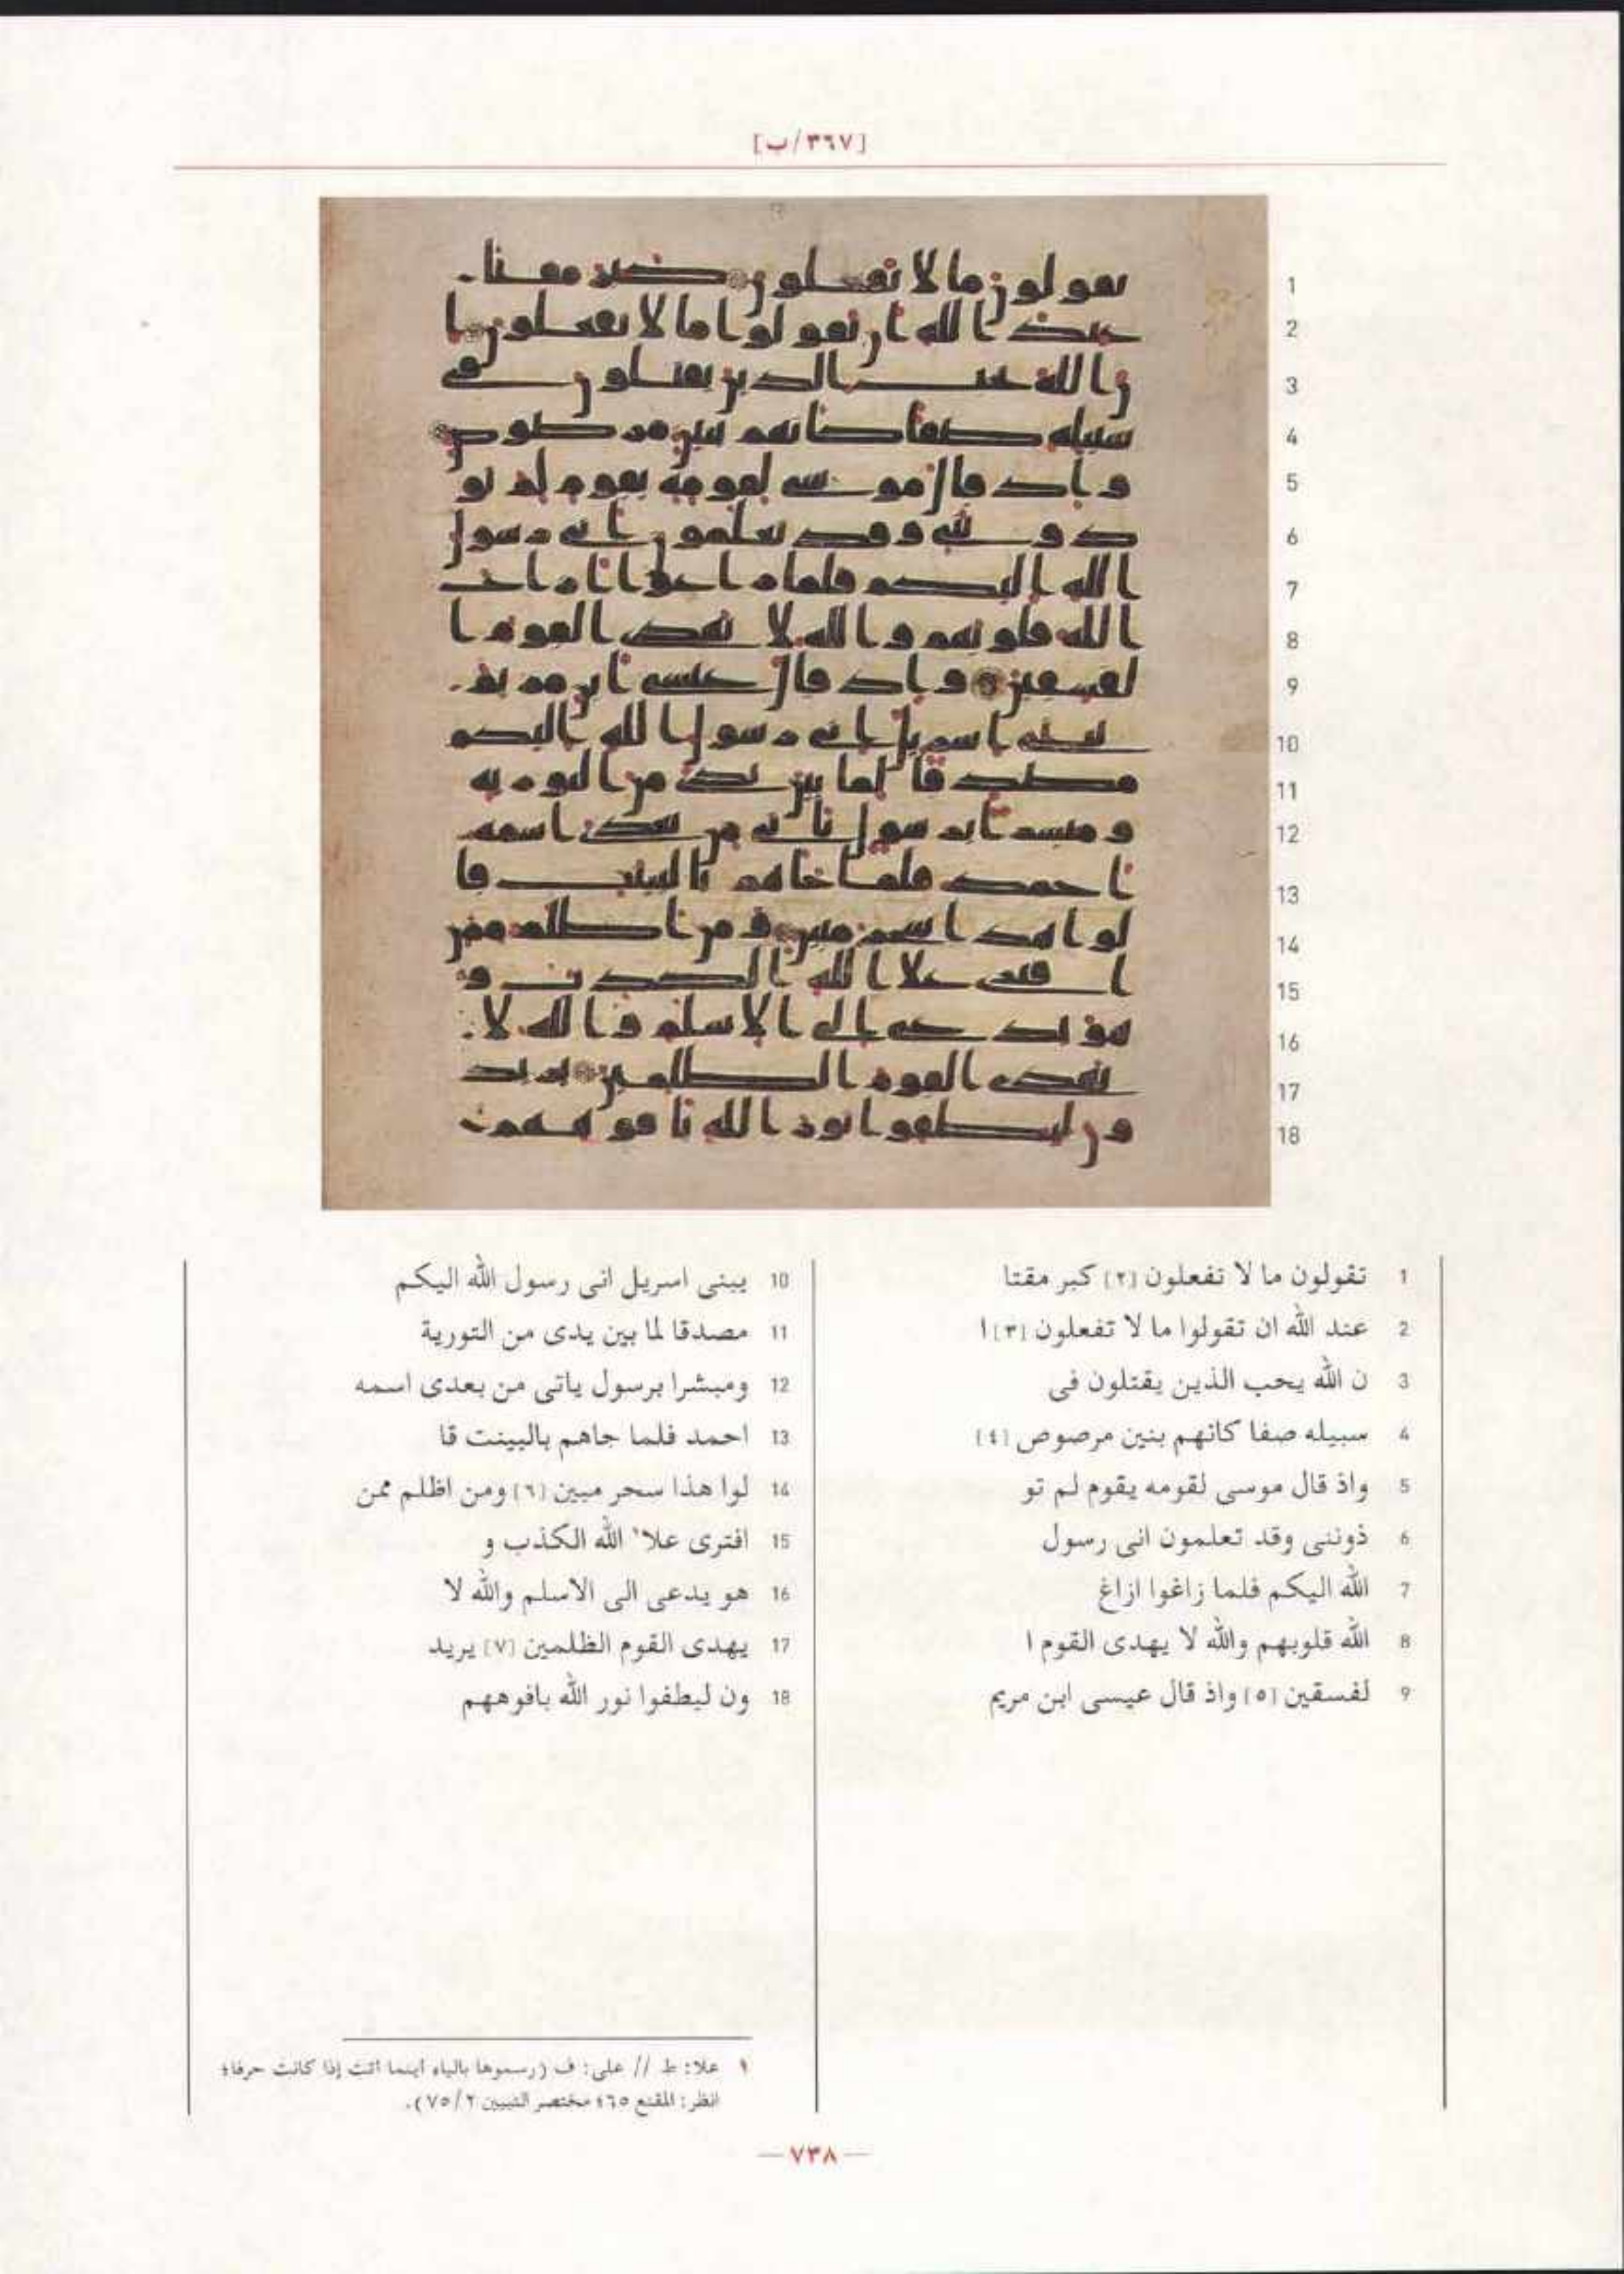 [٣٦٧/ب]
1 تقولون ما لا تفعلون [٢] كبر مقتا
2 عند الله ان تقولوا ما لا تفعلون [٣] ا
3 ن الله يحب الذين يقتلون فى
4 سبيله صفا كانهم بنين مرصوص [٤]
5 واذ قال موسى لقومه يقوم لم تو
6 ذوننى وقد تعلمون انى رسول
7 الله اليكم فلما زاغوا ازاغ
8 الله قلوبهم والله لا يهدى القوم ا
9 لفسقين [٥] واذ قال عيسى ابن مريم
10 يبنى اسريل انى رسول الله اليكم
11 مصدقا لما بين يدى من التورية
12 ومبشرا برسول ياتى من بعدى اسمه
13 احمد فلما جاهم بالبينت قا
14 لوا هذا سحر مبين [٦] ومن اظلم ممن
15 افترى علا١ الله الكذب و
16 هو يدعى الى الاسلم والله لا
17 يهدى القوم الظلمين [٧] يريد
18 ون ليطفوا نور الله بافوههم
١ علا: ط // على: ف (رسموها بالياء أينما أتت إذا كانت حرفا؛
انظر: المقنع ٦٥؛ مختصر التبيين ٧٥/٢).
— ٧٣٨ —